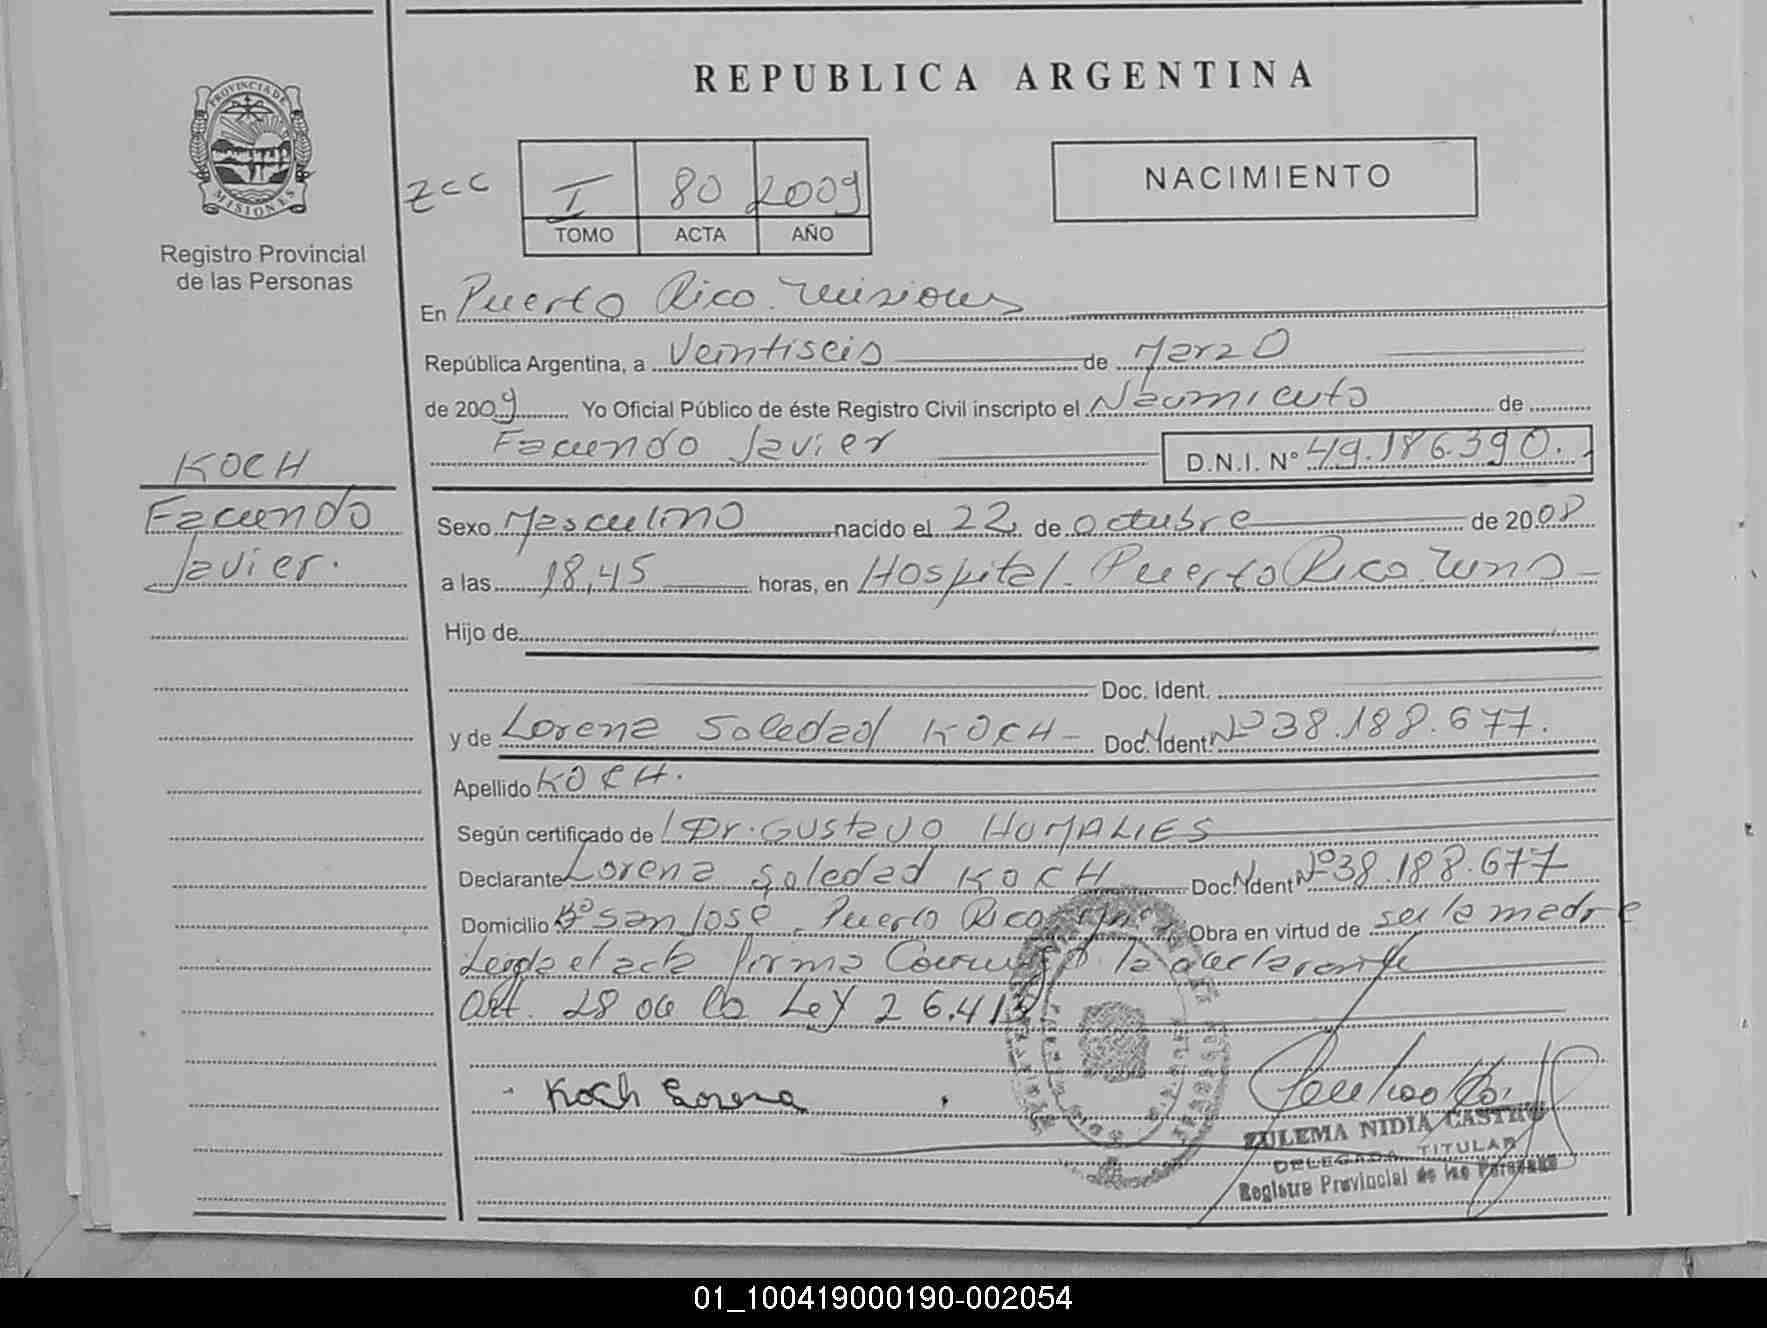 REPUBLICA ARGENTINA
PROVINCIA DE
MISIONES
Registro Provincial
de las Personas
zcc
I 80 2009
TOMO ACTA AÑO
NACIMIENTO
En Puerto Rico. Misiones
República Argentina, a Veintiseis de Marzo
de 2009 Yo Oficial Público de éste Registro Civil inscripto el Nacimiento de
Facundo Javier D.N.I. Nº 49.186.390.
KOCH
Facundo
Javier.
Sexo Masculino nacido el 22 de octubre de 2008
a las 18,45 horas, en Hospital - Puerto Rico. Mns -
Hijo de
Doc. Ident.
y de Lorena Soledad KOCH - Doc. Ident. Nº 38.188.677.
Apellido KOCH.
Según certificado de Dr. Gustavo HUMALIES
Declarante Lorena Soledad KOCH Doc. Ident. Nº 38.188.677
Domicilio Bº San José, Puerto Rico Mns Obra en virtud de ser la madre
Leyda el acta firma Conmigo la declarante
Art. 28 de la Ley 26.413
Koch Lorena
ZULEMA NIDIA CASTRO
DELEGADA TITULAR
Registro Provincial de las Personas
01_100419000190-002054